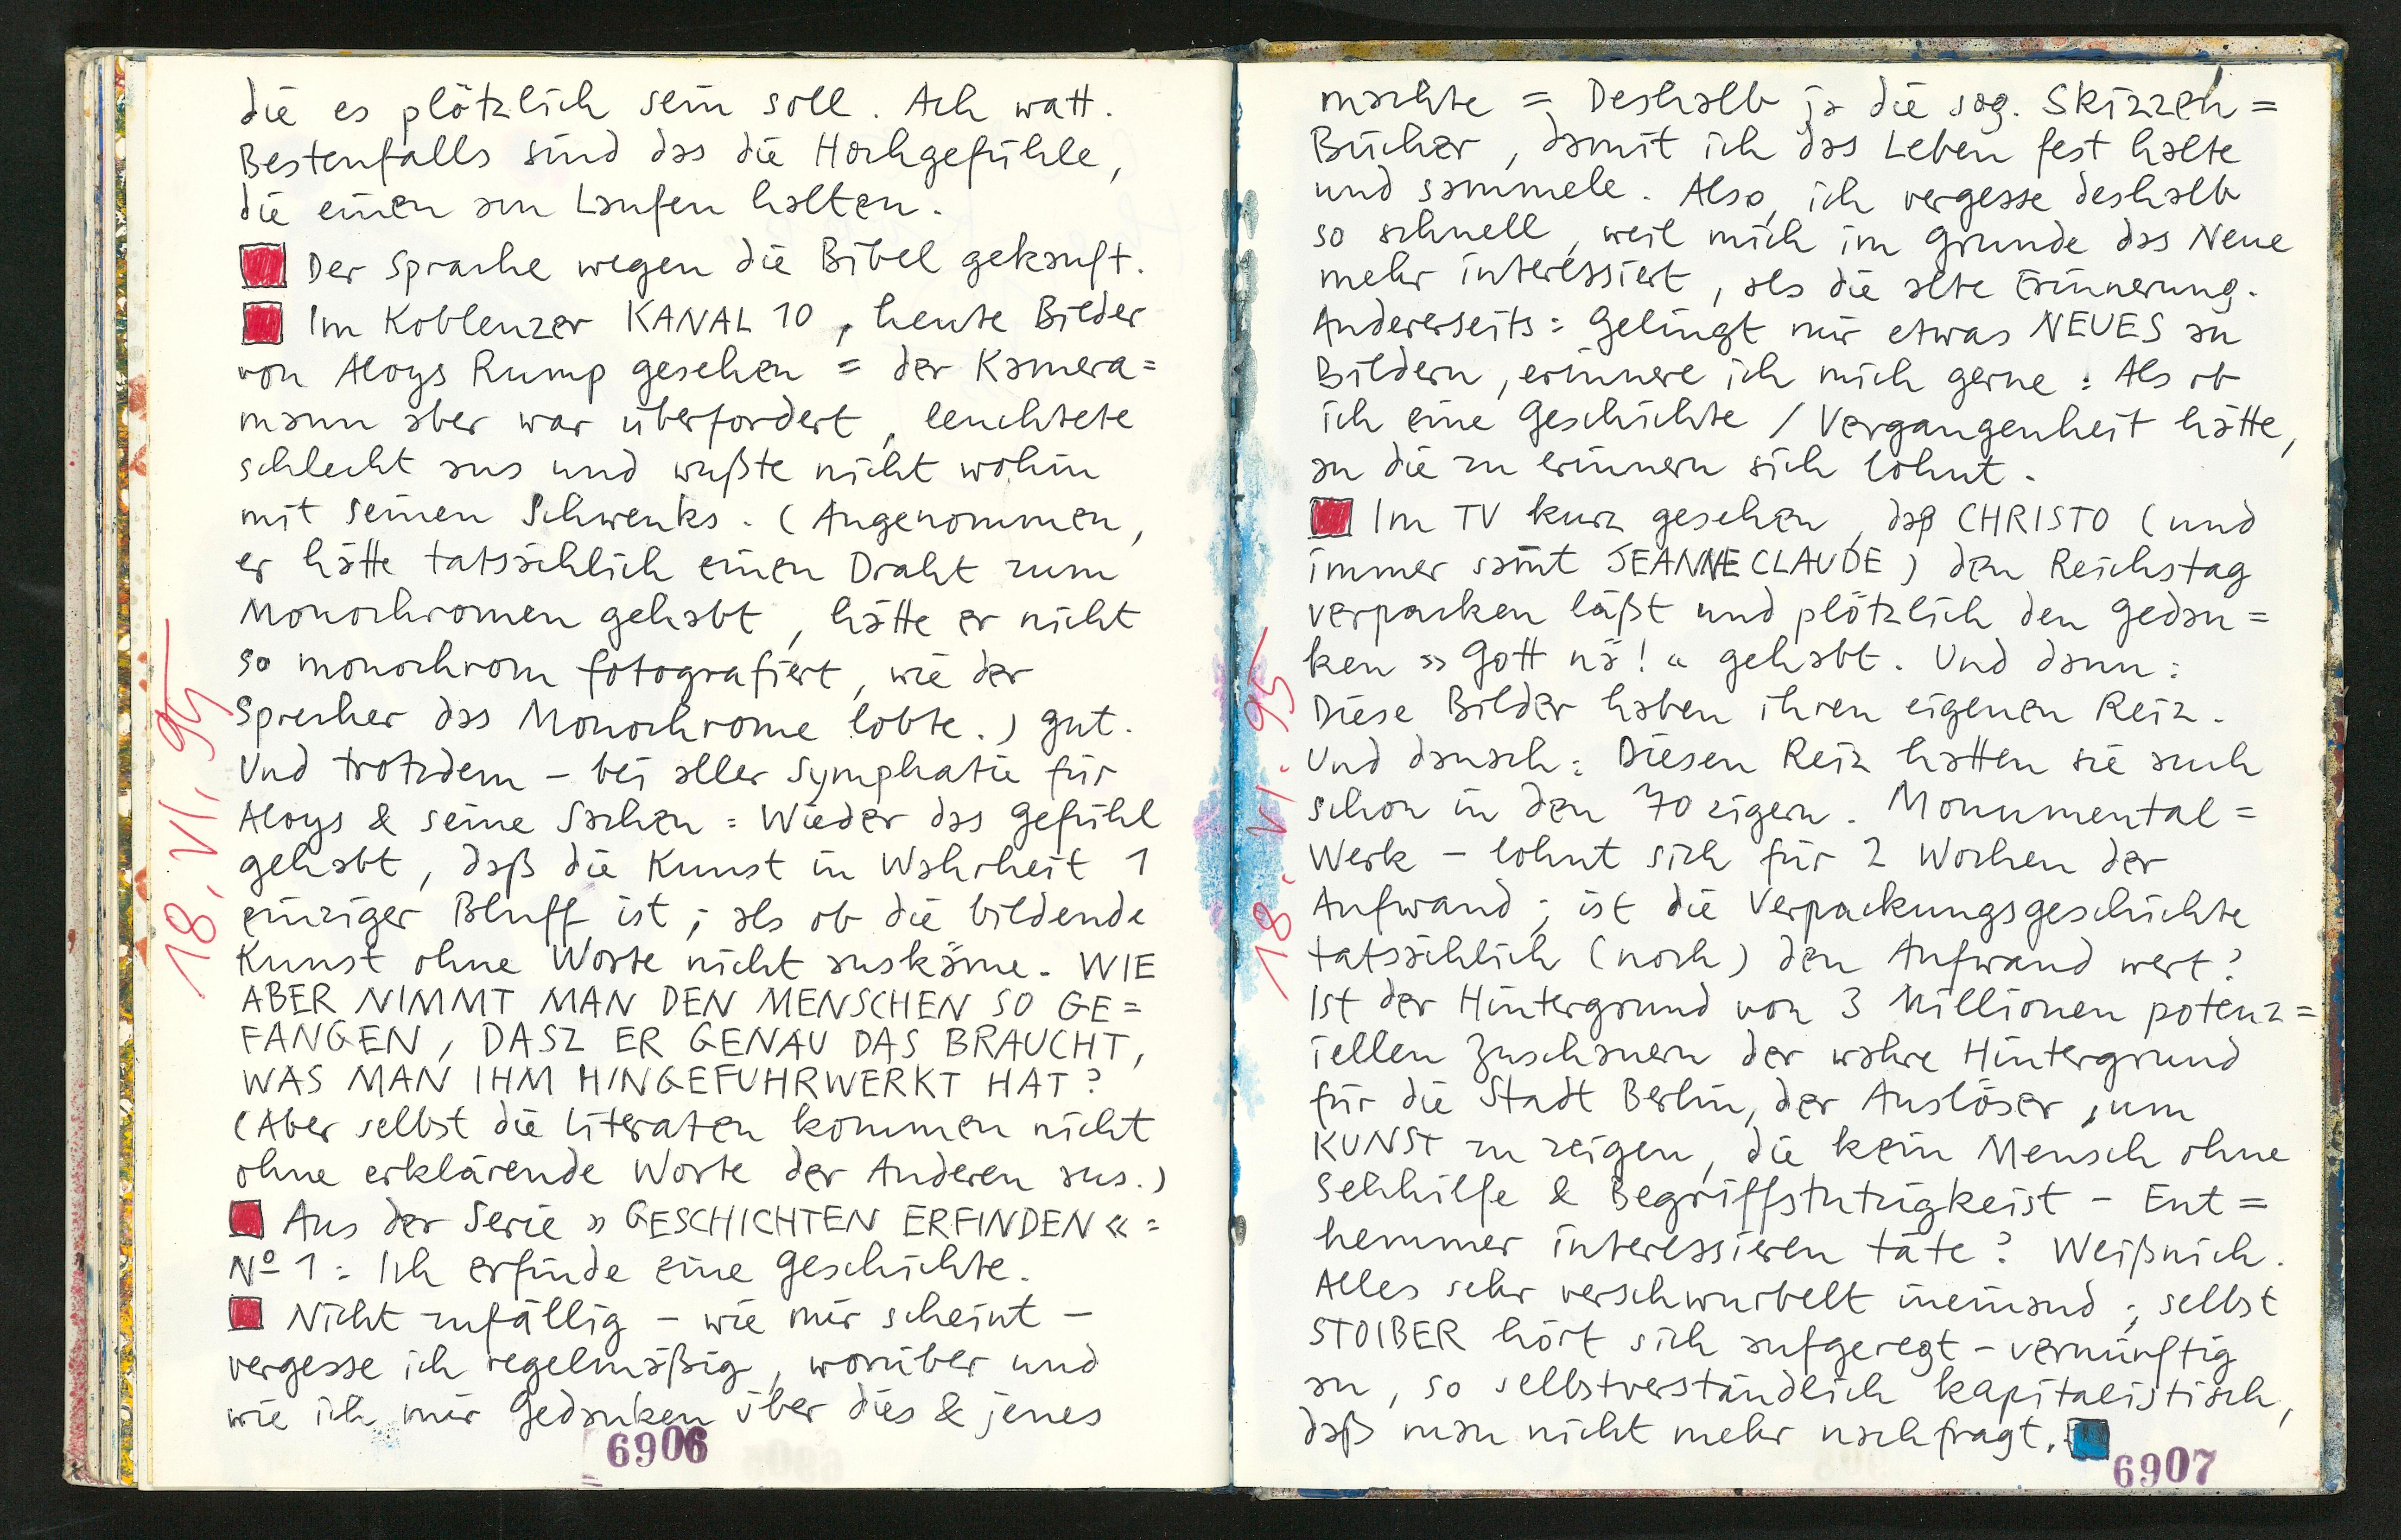 die es plötzlich sein soll. Ach watt.
Bestenfalls sind das die Hochgefühle,
die einen am Laufen halten.
Der Sprache wegen die Bibel gekauft.
Im Koblenzer KANAL 10, heute Bilder
von Aloys Rump gesehen = der Kamera=
mann aber war überfordert, leuchtete
schlecht aus und wußte nicht wohin
mit seinen Schwenks. (Angenommen,
er hätte tatsächlich einen Draht zum
Monochromen gehabt, hätte er nicht
so monochrom fotografiert, wie der
Sprecher das Monochrome lobte.) gut.
Und trotzdem – bei aller Symphatie für
Aloys & seine Sachen = Wieder das Gefühl
gehabt, daß die Kunst in Wahrheit 1
einziger Bluff ist; als ob die bildende
Kunst ohne Worte nicht auskäme. WIE
ABER NIMMT MAN DEN MENSCHEN SO GE=
FANGEN, DASZ ER GENAU DAS BRAUCHT,
WAS MAN IHM HINGEFUHRWERKT HAT?
(Aber selbst die Literaten kommen nicht
ohne erklärende Worte der Anderen aus.)
Aus der Serie »GESCHICHTEN ERFINDEN« =
Nº 1 = Ich erfinde eine Geschichte.
Nicht zufällig – wie mir scheint –
vergesse ich regelmäßig, worüber und
wie ich mir Gedanken über dies & jenes
6906
18. VI. 95
machte = Deshalb ja die sog. Skizzen=
Bücher, damit ich das Leben fest halte
und sammele. Also, ich vergesse deshalb
so schnell, weil mich im Grunde das Neue
mehr interessiert, als die alte Erinnerung.
Andererseits = Gelingt mir etwas NEUES an
Bildern, erinnere ich mich gerne : Als ob
ich eine Geschichte / Vergangenheit hätte,
an die zu erinnern sich lohnt.
Im TV kurz gesehen, daß CHRISTO (und
immer samt JEANNE CLAUDE) den Reichstag
verpacken läßt und plötzlich den Gedan=
ken »Gott nä!« gehabt. Und dann:
Diese Bilder haben ihren eigenen Reiz.
Und danach: Diesen Reiz hatten sie auch
schon in den 70zigern. Monumental=
Werk – lohnt sich für 2 Wochen der
Aufwand; ist die Verpackungsgeschichte
tatsächlich (noch) den Aufwand wert?
Ist der Hintergrund von 3 Millionen potenz=
iellen Zuschauern der wahre Hintergrund
für die Stadt Berlin, der Auslöser, um
KUNST zu zeigen, die kein Mensch ohne
Sehhilfe & Begriffstutzigkeist – Ent=
hemmer interessieren täte? Weißnich.
Alles sehr verschwurbelt ineinand; selbst
STOIBER hört sich aufgeregt – vernünftig
an, so selbstverständlich kapitalistisch,
daß man nicht mehr nachfragt.
6907
18. VI. 95